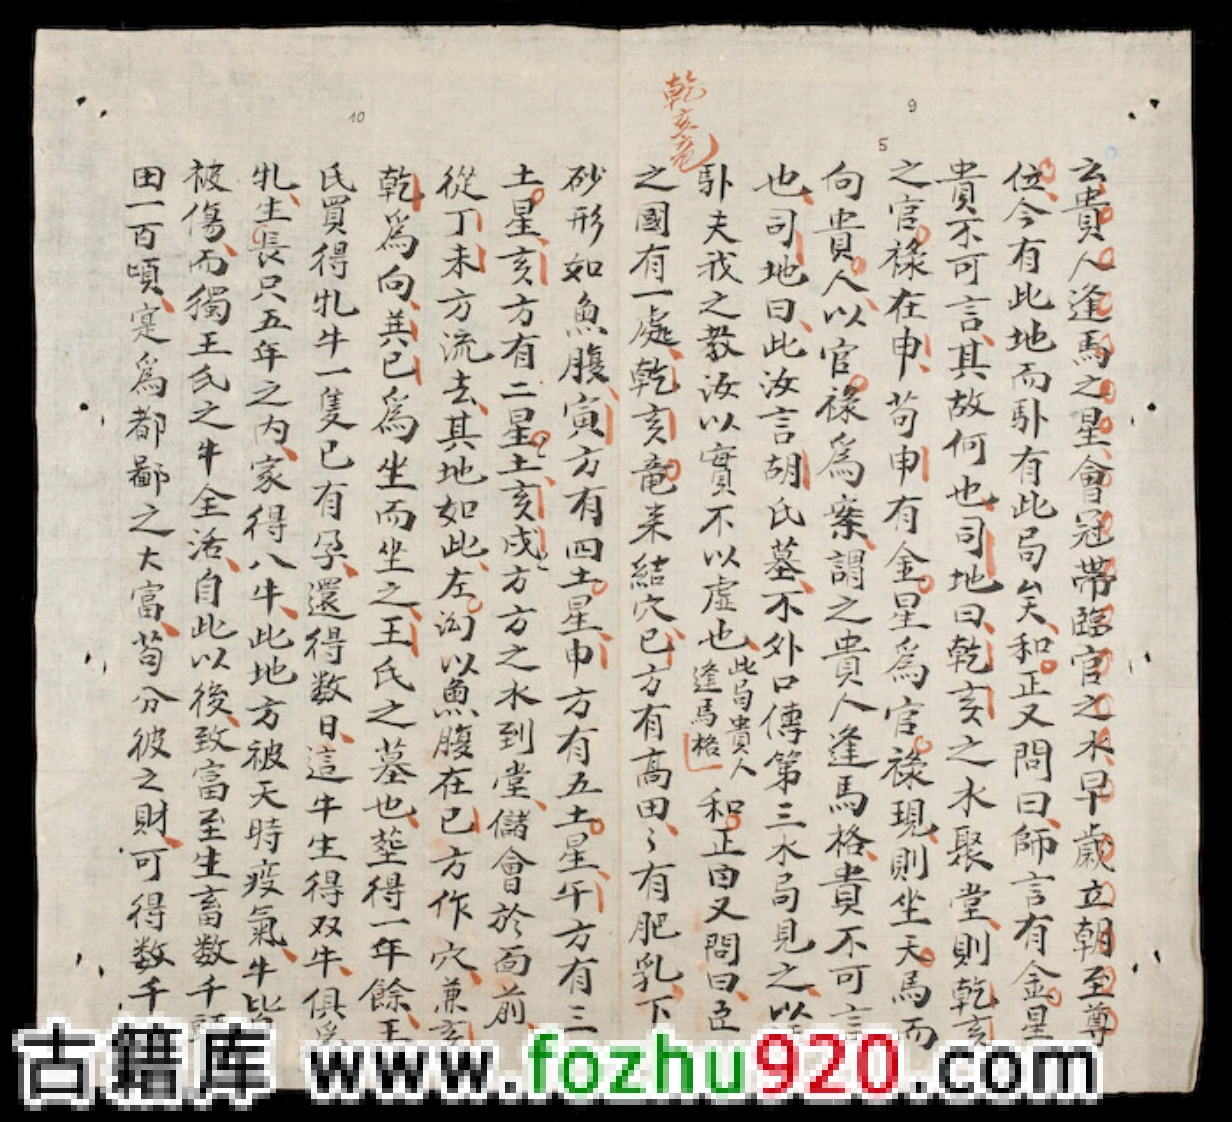 云貴人逢馬之星會冠帶臨官之水早歲立朝至尊
位今有此地而卧有此局矣和正又問曰師言有金星
貴不可言其故何也司地曰乾亥之水聚堂則乾亥
之官祿在申苟申有金星為官祿現則坐天馬而
向貴人以官祿為案謂之貴人逢馬格貴不可言
也司地曰此汝言胡氏墓不外口傳第三水局見之
卧夫我之教汝以實不以虛也此局貴人逢馬格和正曰又問曰
之國有一處乾亥竜来結穴巳方有高田〻有肥乳下
砂形如魚腹寅方有四土星申方有五土星午方有三
土星亥方有二星土亥戌方方之水到堂儲會於面前
從丁未方流去其地如此左沟以魚腹在巳方作穴兼亥
乾為向巽巳為坐而坐之王氏之墓也塟得一年餘王
氏買得牝牛一隻已有孕還得数日這牛生得双牛俱
牝生長只五年之內家得八牛此地方被天時疫氣牛
被傷而獨王氏之牛全活自此以後致富至生畜数千
田一百頃寔為都鄙之大富苟分彼之財可得数千
乾亥竜
9
5
10
古籍库 www.fozhu920.com